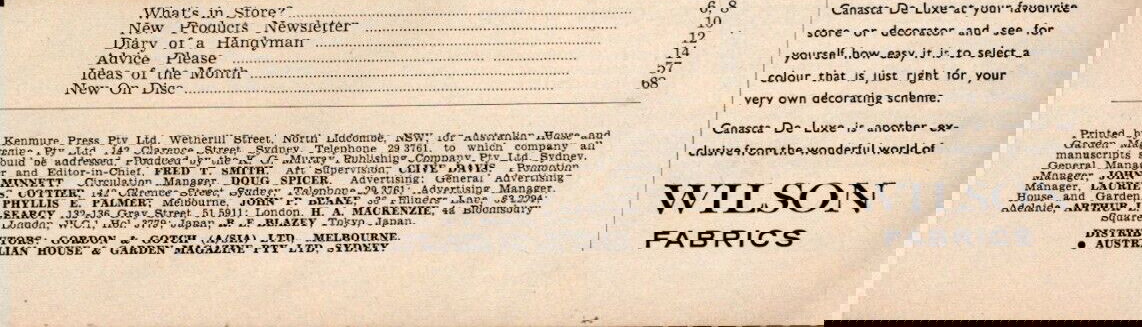 What's in Store?
New Products Newsletter 10
Diary of a Handyman 12
Advice Please 14
Ideas of the Month 57
New On Disc 68
Kenmure Press Pty Ltd. Wetherill Street, North Lidcombe, NSW, for Australian House and
Pty Ltd 142 Clarence Street, Sydney. Telephone 29 3761, to which company all
ould be addressed. Produced by the K. G. Murray Publishing Company Pty Ltd, Sydney.
r and Editor-in-Chief, FRED T. SMITH. Art Supervision, CLIVE DAVIS. Promotion
Circulation Manager DOUG SPICER. Advertising: General Advertising
LOTTIER, 142 Clarence Street, Sydney. Telephone 29 3761. Advertising Manager,
PHYLLIS E. PALMER; Melbourne, JOHN F. Flinders Lane
SEARCY, 132-136 Gray Street, 51 5911; London, H. A. MACKENZIE, 4a Bloomsbury
London, W.C.1, Hol. 3779; Japan, B. F. BLAZEY, Tokyo, Japan.
GORDON & GOTCH (A/SIA) LTD., MELBOURNE.
LIAN HOUSE & GARDEN MAGAZINE PTY LTD, SYDNEY
Canasta De Luxe at your favourite
store or decorator and see for
yourself how easy it is to select a
colour that is just right for your
very own decorating scheme.
Canasta De Luxe is another ex-
clusive from the wonderful world of
WILSON
FABRICS
Printed b
Garden Mag
manuscripts s
General Manag
Manager, JOHN
Manager, LAURIE
House and Garden
Adelaide, ARTHUR J
Square
DISTRIB
● AUSTRA